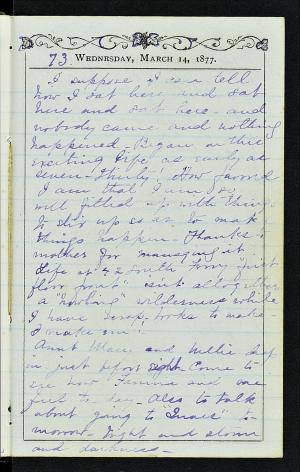 73. WEDNESDAY, MARCH 14, 1877.
I suppose I can tell
how I sat here and sat
here and sat here - and
nobody came and nothing
happened - Began on this
exciting life as early as
seven-thirty! How
I am that I am so
well fitted up with things
to stir up so as to make
things happen - Thanks to
mother for managing it.
Life at 42 South Tenn "first
floor front" isn't altogether
a "howling" wilderness while
I have scrap books to make -
I make em!
Aunt Mary and Nellie
in just before Come to
see how Fannie and we
feel to-day - Also to talk
about going to "" to-
morrow - Night and storm
and darkness -